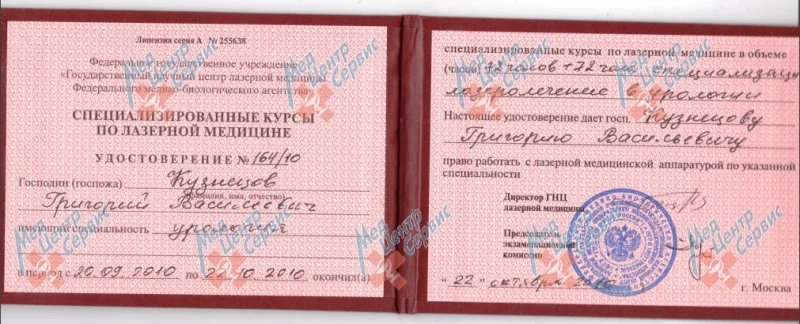 Лицензия серия А № 255638
Федеральное государственное учреждение
«Государственный научный центр лазерной медицины
Федерального медико-биологического агентства»
СПЕЦИАЛИЗИРОВАННЫЕ КУРСЫ
ПО ЛАЗЕРНОЙ МЕДИЦИНЕ
УДОСТОВЕРЕНИЕ № 164/10
Господин (госпожа) Кузнецов
(фамилия, имя, отчество)
Григорий Васильевич
имеющий специальность урология
в период с 20.09.2010 по 22.10.2010 окончил(а)
специализированные курсы по лазерной медицине в объеме
(часов) 72 часов + 72 час специализация
лазеролечение в урологии
Настоящее удостоверение дает госп. Кузнецову
Григорию Васильевичу
право работать с лазерной медицинской аппаратурой по указанной
специальности
Директор ГНЦ
лазерной медицины
Председатель
экзаменационной
комиссии
" 22 " октября 2010
г. Москва
Мед Центр Сервис
Мед Центр Сервис
Мед Центр Сервис
Мед Центр Сервис
Мед Центр Сервис
Мед Центр Сервис